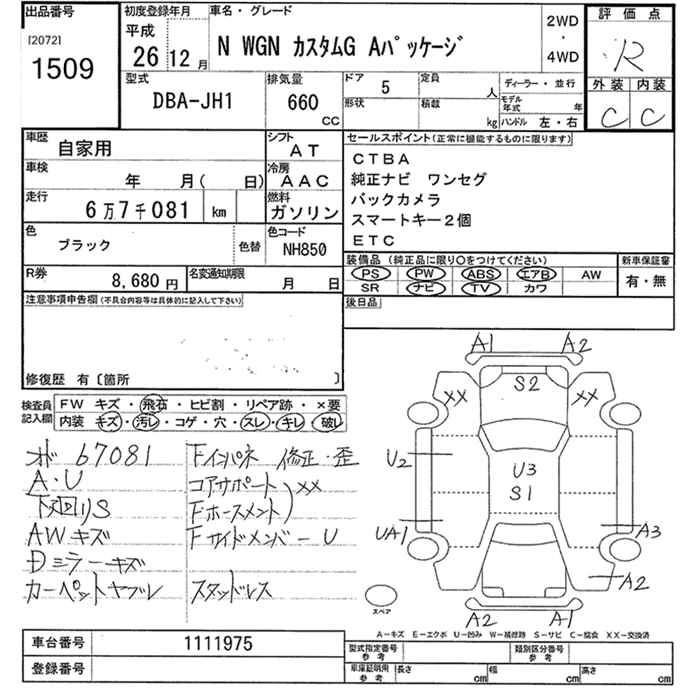 出品番号
[2072]
1509
初度登録年月
平成
26 12 月
車名・グレード
N WGN カスタムG Aパッケージ
2WD
・
4WD
評価点
R
外装 内装
C C
型式
DBA-JH1
排気量
660
CC
ドア 5
形状
定員 人
積載 kg
ディーラー・並行
モデル年式 年
ハンドル 左・右
車歴 自家用
シフト AT
車検 年 月( 日)
冷房 AAC
走行 6万7千081 km
燃料 ガソリン
色 ブラック 色替
色コード NH850
R券 8,680円
名変通知期限 月 日
セールスポイント(正常に機能するものに限ります)
CTBA
純正ナビ ワンセグ
バックカメラ
スマートキー2個
ETC
装備品 (純正品に限り○をつけてください)
PS PW ABS エアB AW
SR ナビ TV カワ
新車保証書
有・無
後日品
注意事項申告欄(不具合内容等は具体的に記入して下さい)
修復歴 有〔箇所 〕
検査員記入欄
FW キズ・飛石・ヒビ割・リペア跡・×要
内装 キズ・汚レ・コゲ・穴・スレ・キレ・破レ
メボ 67081
A・U
下廻りS
AWキズ
Dミラーキズ
カーペットヤブレ
Fインパネ 修正・歪
コアサポート
Fホースメント )××
FサイドメンバーU
スタッドレス
A1 A2
XX S2 XX
U2
U3
S1
UA1 A3
A2
スペア
A2 A1
A－キズ E－エクボ U－凹み W－補修跡 S－サビ C－腐食 XX－交換済
車台番号 1111975
登録番号
型式指定番号参考
類別区分番号参考
車庫証明用参考 長さ cm 幅 cm 高さ cm